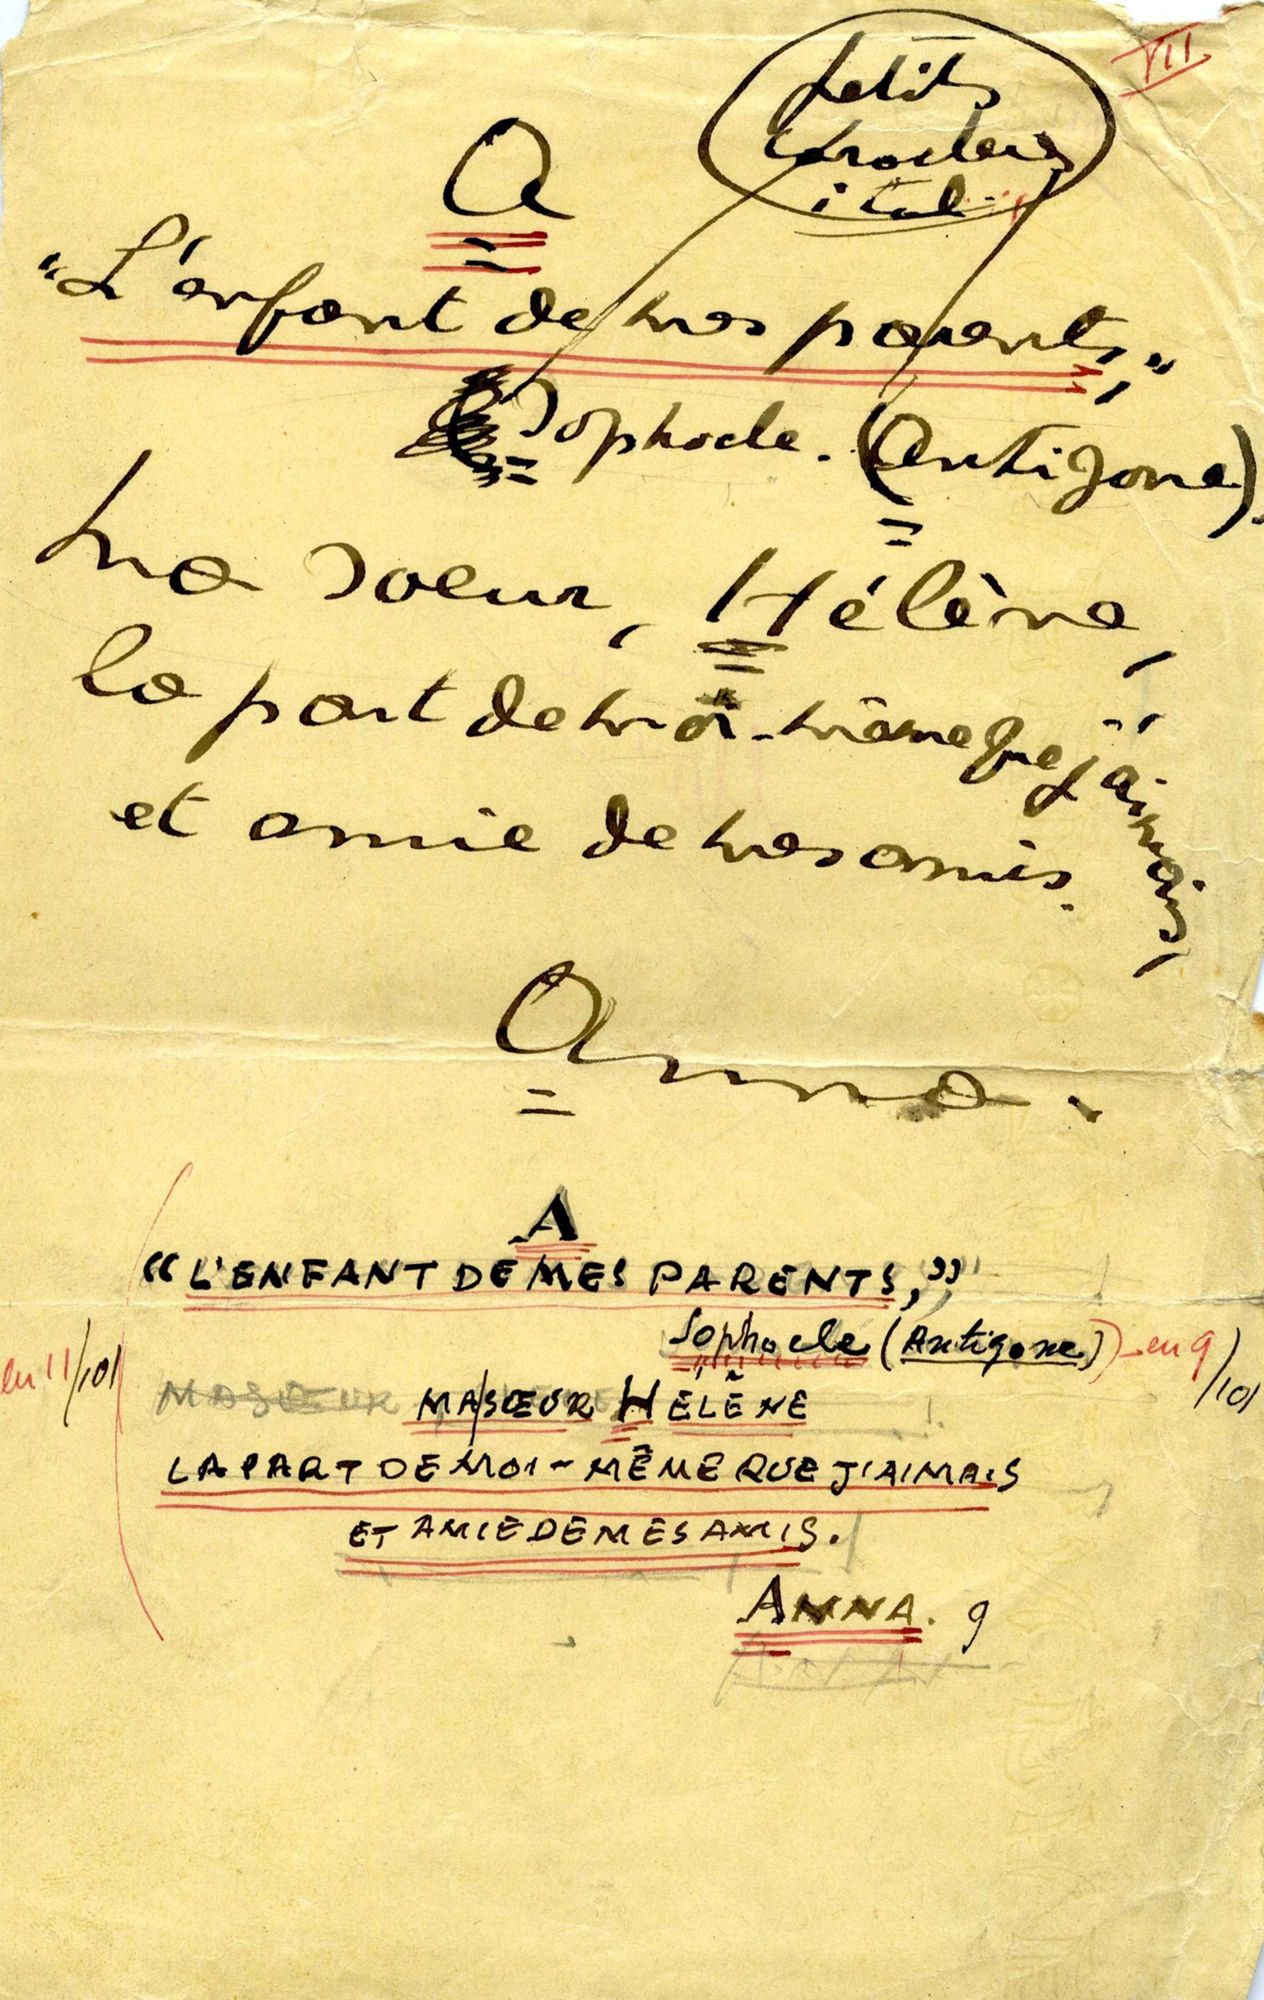 VII
petits
caractères
ital.
A
“L'enfant de mes parents,”
Sophocle. (Antigone).
Ma soeur, Hélène,
la part de moi-même que j'aimais,
et amie de mes amis.
Anna.
A
“L'ENFANT DE MES PARENTS,”
Sophocle (Antigone) en 9/101
en 11/101
MA SŒUR
MA SŒUR HÉLÈNE
LA PART DE MOI-MÊME QUE J'AIMAIS
ET AMIE DE MES AMIS.
ANNA. 9